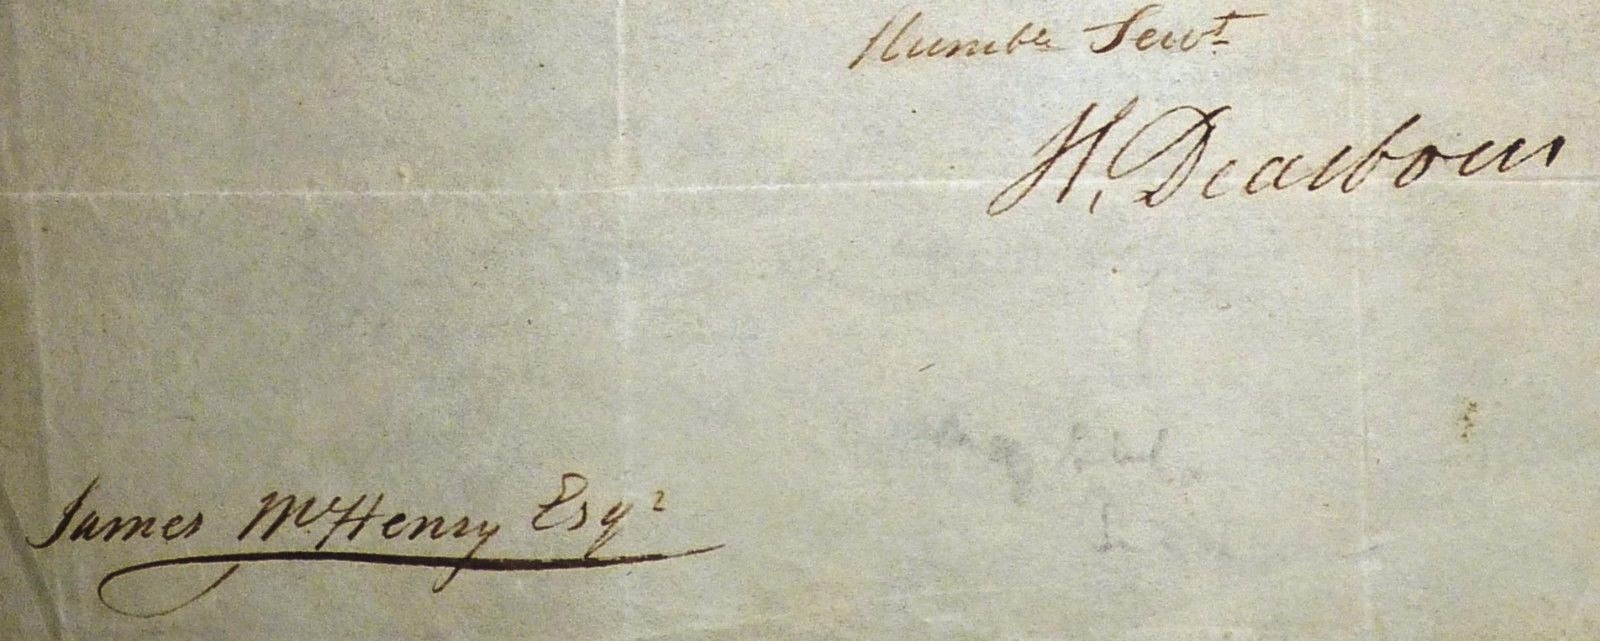 Humble Serv.t
H. Dearborn
James McHenry Esqr